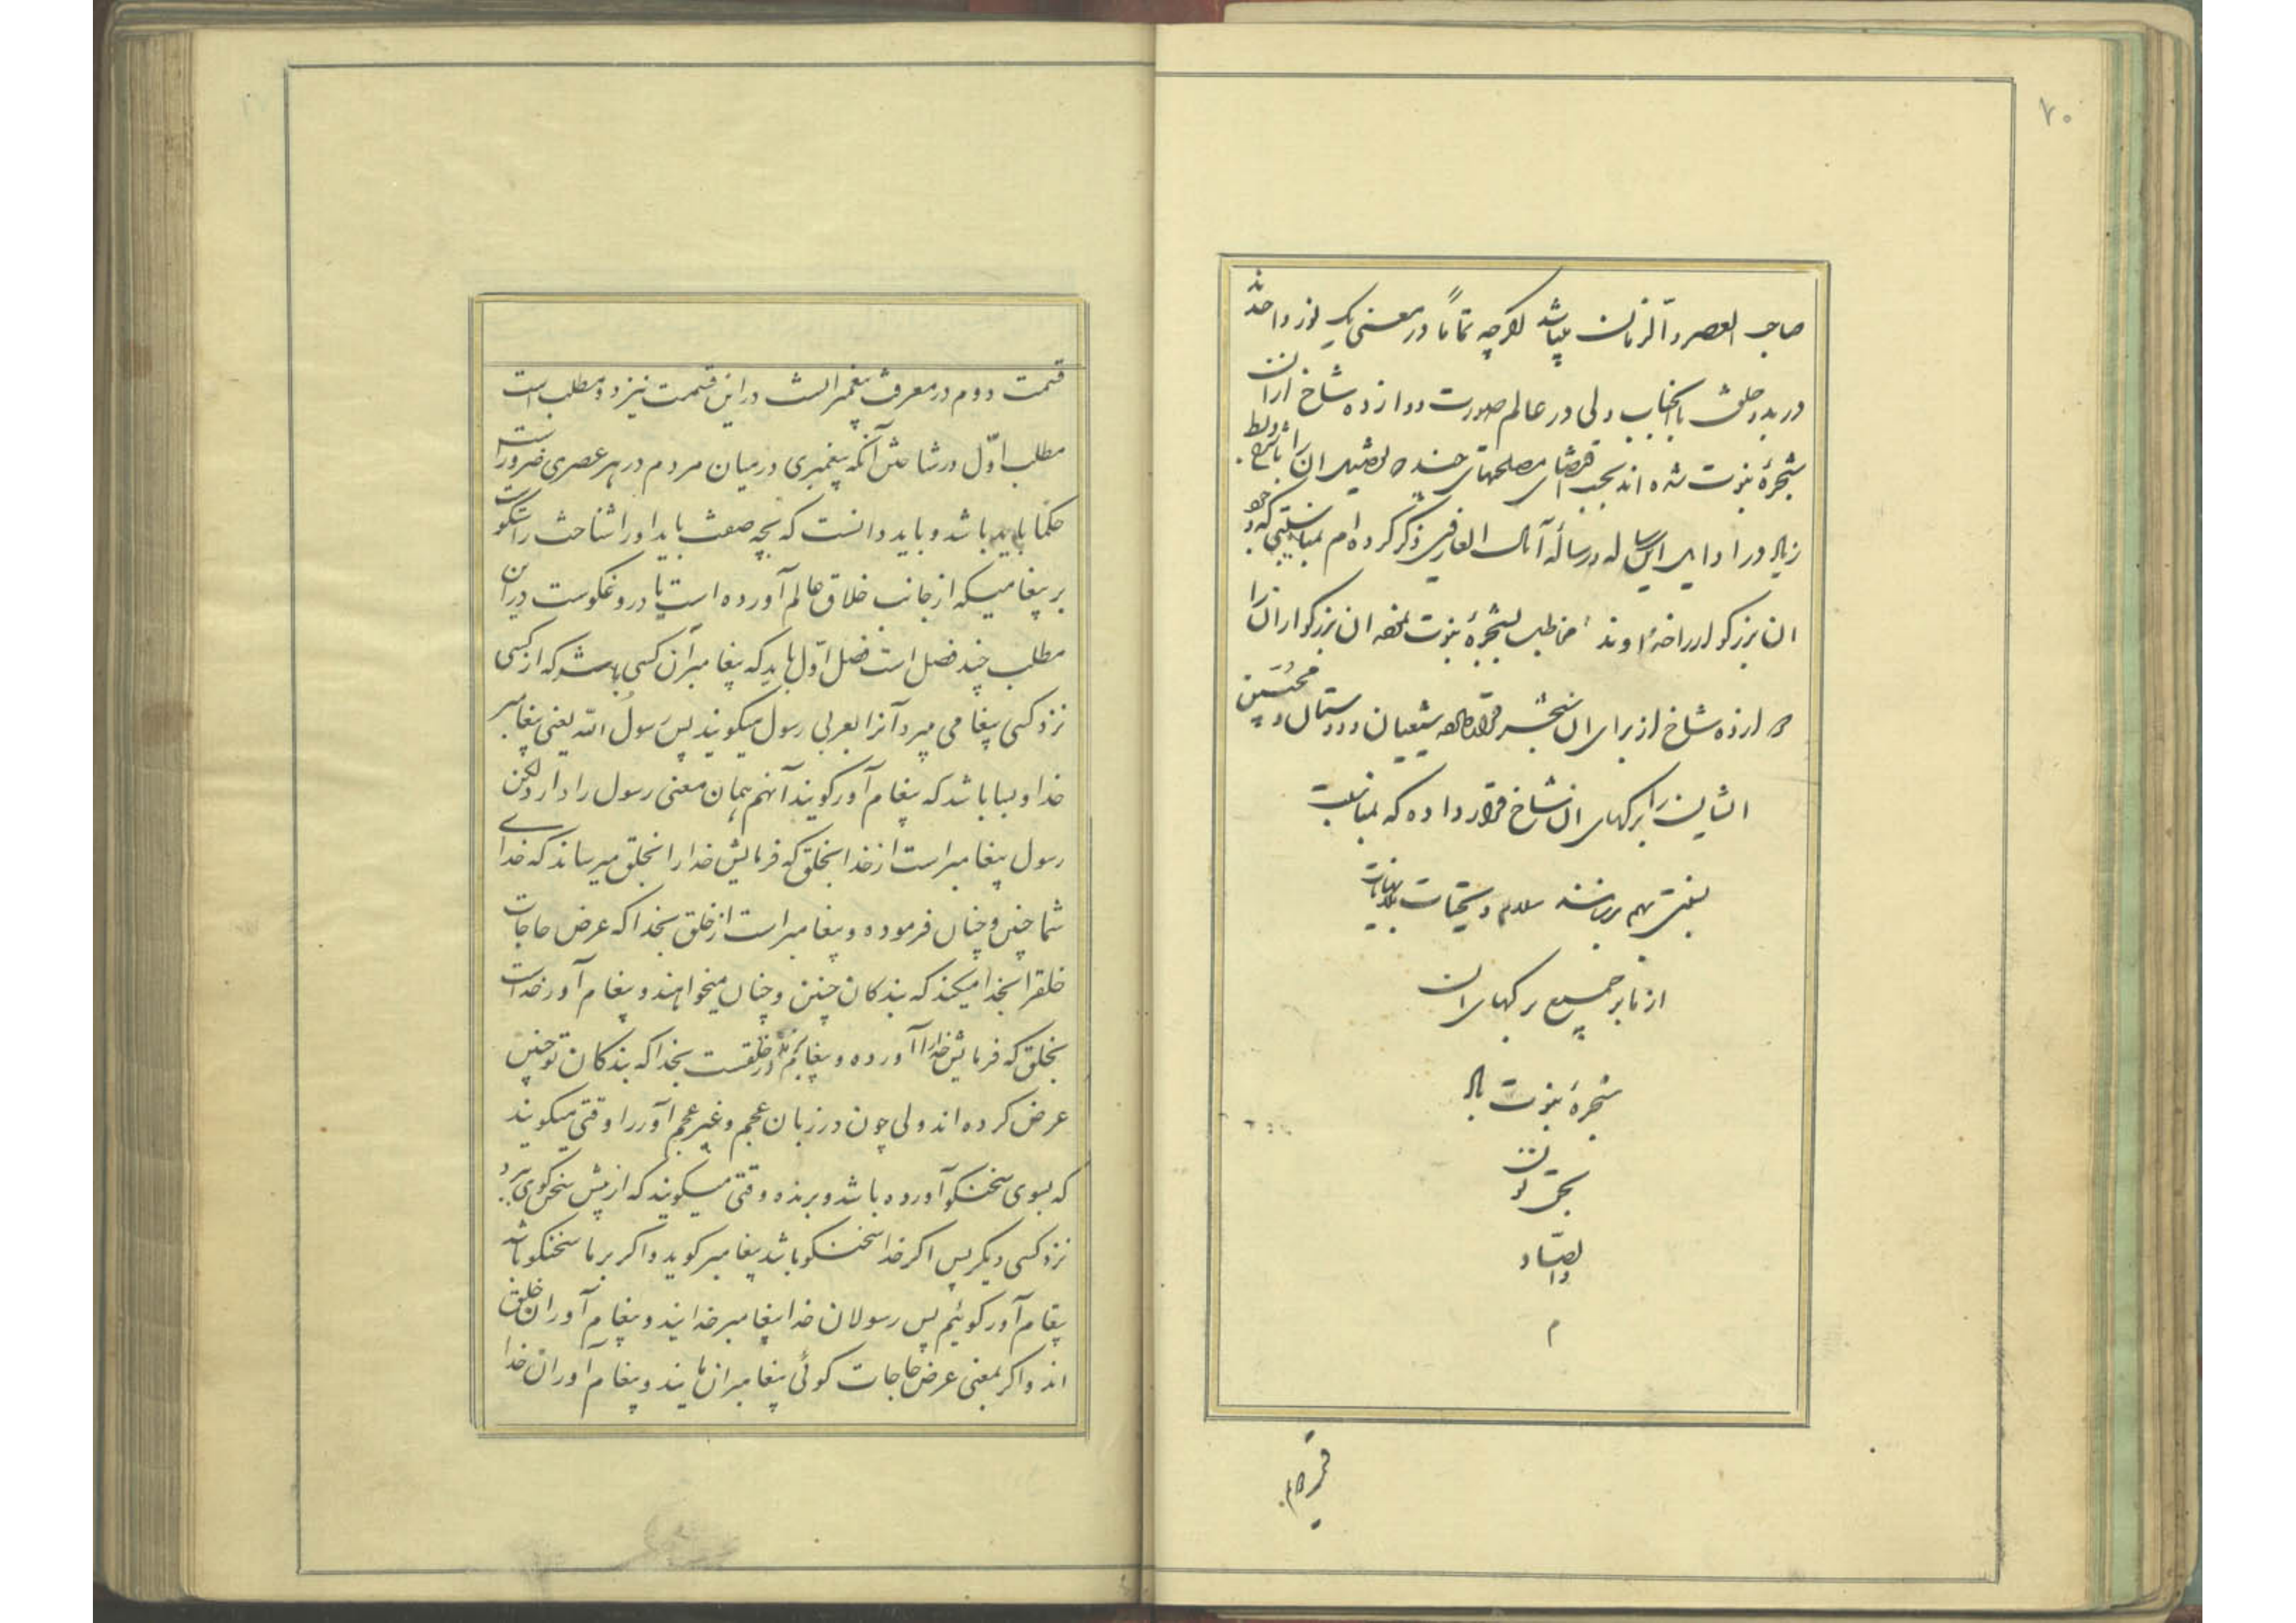 ۲۰
صاحب العصر و الزمان میباشد اگرچه تماماً در معنی یک نور واحد
در بدو خلقت با انجناب ولی در عالم صورت دوازده شاخ از ان
شجرهٔ نبوت شده اند بحسب اقتضای مصلحتهای چند که تفصیل ان را با شرح و بسط
زیاد در اوایل این رساله در رسالهٔ آمال العارفین ذکر کرده ام بمناسبتی که خود
ان بزرگوار را خداوند مخاطب بشجرهٔ نبوت نموده ان بزرگواران را
دوازده شاخ از برای ان شجر قرار داده شیعیان و دوستان و محبین
ایشان را برگهای ان شاخ قرار داده که بمناسبت
بیفتی هم برسانند سلام و تحیات بینهایات
از ما بر جمیع برگهای ان
شجرهٔ نبوت باد
بحق نون
والصاد
م
قسمت دوم
قسمت دوم در معرفت پیغمبر است در این قسمت نیز دو مطلب است
مطلب اوّل در شناختن آنکه پیغمبری در میان مردم در هر عصری ضرور است
حکما باید باشد و باید دانست که بچه صفت باید او را شناخت راستگوست
بر پیغامیکه از جانب خلاق عالم آورده است یا دروغگوست در این
مطلب چند فصل است فصل اوّل باید که پیغامبر آن کسی باشد که از کسی
نزد کسی پیغامی میبرد آنرا بعربی رسول میگویند پس رسول الله یعنی پیغامبر
خدا و بسا باشد که پیغام آور گویند آنهم همان معنی رسول را دارد لکن
رسول پیغامبر است از خدا بخلق که فرمایش خدا را بخلق میرساند که خدای
شما چنین و چنان فرموده و پیغامبر است از خلق بخدا که عرض حاجات
خلقرا بخدا میکند که بندکان چنین و چنان میخواهند و پیغام آور خداست
بخلق که فرمایش خدا را آورده و پیغام بر خلقست بخدا که بندکان تو چنین
عرض کرده اند ولی چون در زبان عجم و غیر عجم آور را وقتی میگویند
که بسوی سخنگو آورده باشد و برنده وقتی میگویند که از پیش سخن گوی ببرد
نزد کسی دیگر پس اگر خدا سخنگو باشد پیغامبر گوید و اگر بر ما سخنگو باشد
پیغام آور گوئیم پس رسولان خدا پیغامبر خدایند و پیغام آوران خلق
اند و اگر بمعنی عرض حاجات گوئی پیغامبران مایند و پیغام آوران خدا